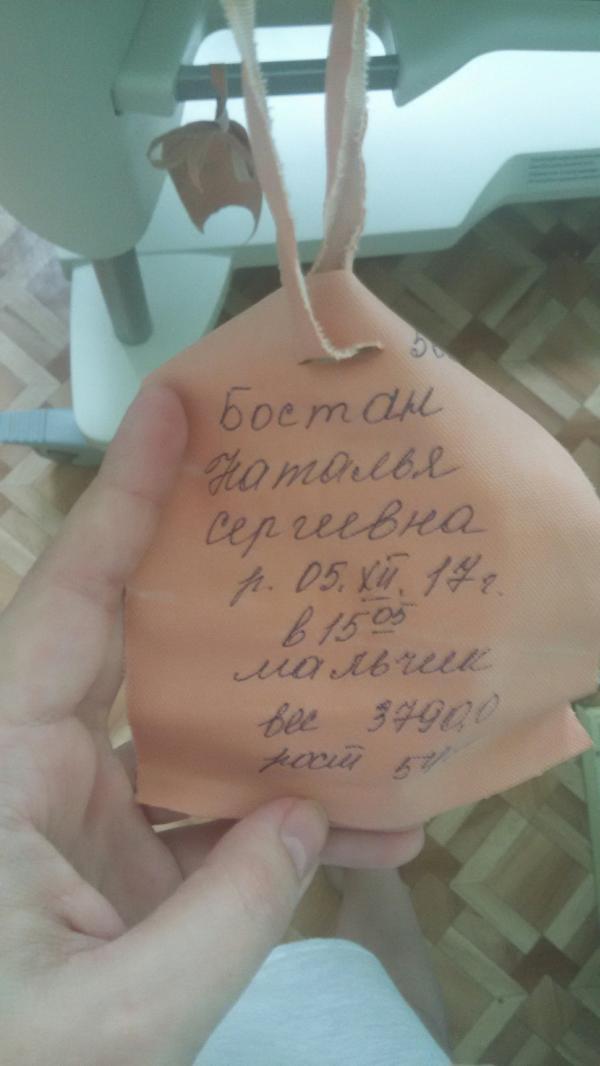 Бостан
Наталья
Сергеевна
р. 05. XII. 17г.
в 15 05
мальчик
вес 3790,0
рост